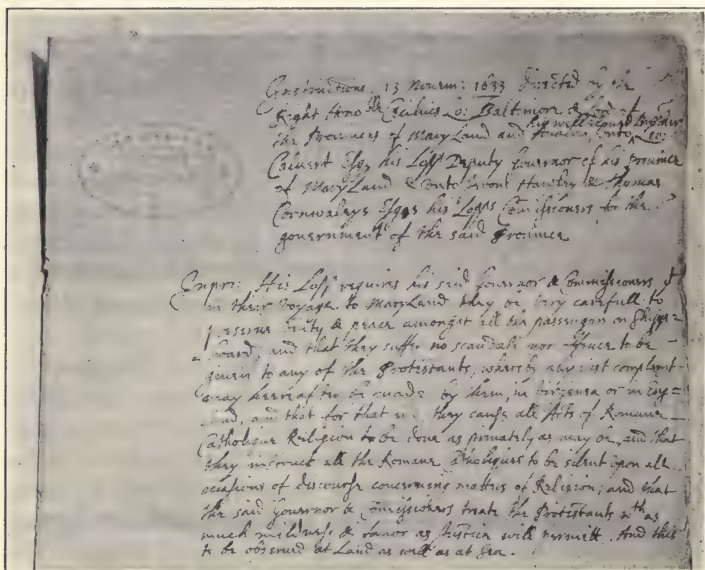 Instructions 13 Novem: 1633 directed by the
Right Hono:ble Cecilius Lo: Baltimore & Lord of
the Provinces of Mary Land and Avalon unto his well beloved Brother Leo:
Calvert Esq; his Lo:pps Deputy Governor of his Province
of Mary Land & unto Jerom Hawley & Thomas
Cornwaleys Esqrs his Lo:pps Comissioners for the
government of the said Province
Inpri: His Lo:pp requires his said Governor & Commissioners yt
in their voyage to Mary Land they be very carefull to
preserve unity & peace amongst all the passengers on Shipp-
board, and that they suffer no scandall nor offence to be
given to any of the Protestants, whereby any just complaint
may heereafter be made, by them, in Virginea or in Eng-
land, and that for that end, they cause all Acts of Romane
Catholique Religion to be done as privately as may be, and that
they instruct all the Romane Catholiques to be silent upon all
occasions of discourse concerning matters of Religion; and that
the said Governor & Comissioners treate the Protestants wth as
much mildness & favor as Justice will permitt. And this
to be observed at Land as well as at Sea.